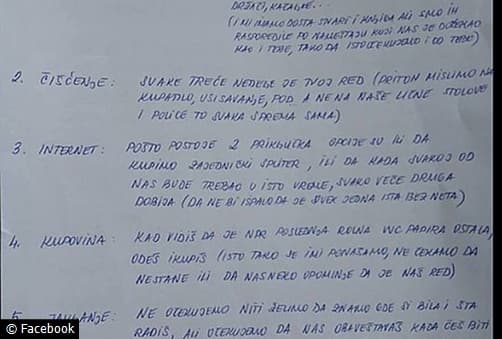 DRŽAČI, KAČALJKE...
(I MI IMAMO DOSTA STVARI I KNJIGA ALI SMO IH
RASPOREDILE PO NAMEŠTAJU KOJI NAS JE DOČEKAO
KAO I TEBE, TAKO DA ISTO OČEKUJEMO I OD TEBE)
2. ČIŠĆENJE: SVAKE TREĆE NEDELJE JE TVOJ RED (PRITOM MISLIMO NA
KUPATILO, USISAVANJE, POD, A NE NA NAŠE LIČNE STOLOVE
I POLICE TO SVAKA SPREMA SAMA)
3. INTERNET: POŠTO POSTOJE 2 PRIKLJUČKA OPCIJE SU ILI DA
KUPIMO ZAJEDNIČKI SPLITER, ILI DA KADA SVAKOJ OD
NAS BUDE TREBAO U ISTO VREME, SVAKO VEČE DRUGA
DOBIJA (DA NE BI ISPALO DA JE UVEK JEDNA ISTA BEZ NETA)
4. KUPOVINA: KAO VIDIŠ DA JE NPR POSLEDNJA ROLNA WC PAPIRA OSTALA,
ODEŠ I KUPIŠ (ISTO TAKO SE I MI PONAŠAMO, NE ČEKAMO DA
NESTANE ILI DA NAS NEKO UPOMINJE DA JE NAŠ RED)
5. JAVLJANJE: NE OČEKUJEMO NITI ŽELIMO DA ZNAMO GDE SI BILA I ŠTA
RADIŠ, ALI OČEKUJEMO DA NAS OBAVEŠTAVAŠ KADA ĆEŠ BITI
© Facebook